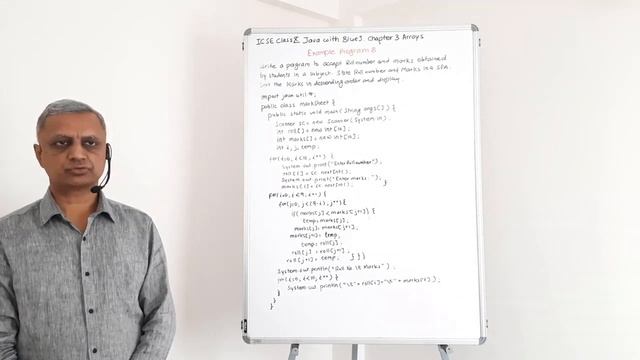 ICSE Class X Java with BlueJ Chapter 3 Arrays
Example Program 8
Write a program to accept Roll number and marks obtained
by students in a subject. Store Roll number and Marks in a SDA.
Sort the Marks in descending order and display.
import java.util.*;
public class marksheet {
public static void main (String args[]) {
Scanner sc = new Scanner (System.in);
int roll[] = new int[10];
int marks[] = new int[10];
int i, j, temp;
for(i=0; i<10; i++) {
System.out.print("Enter Roll number");
roll[i] = sc.nextInt();
System.out.print("Enter marks: ");
marks[i] = sc.nextInt(); }
for(i=0; i<9; i++) {
for(j=0; j<(9-i); j++) {
if(marks[j] < marks[j+1]) {
temp = marks[j];
marks[j] = marks[j+1];
marks[j+1] = temp;
temp = roll[j];
roll[j] = roll[j+1];
roll[j+1] = temp; } } }
System.out.println("Roll No \t Marks");
for(i=0; i<10; i++) {
System.out.println("\t" + roll[i] + "\t" + marks[i]);
}
}
}